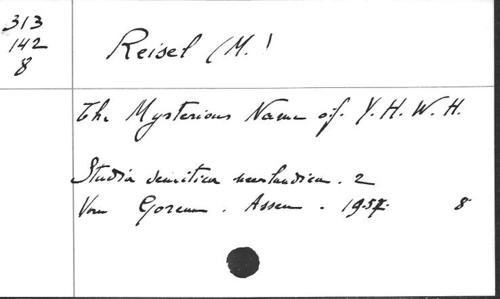 313
142
8
Reisel (M.)
The Mysterious Name of. Y. H. W. H.
Studia semitica neerlandica. 2
Van Gorcum. Assen. - 1957. 8